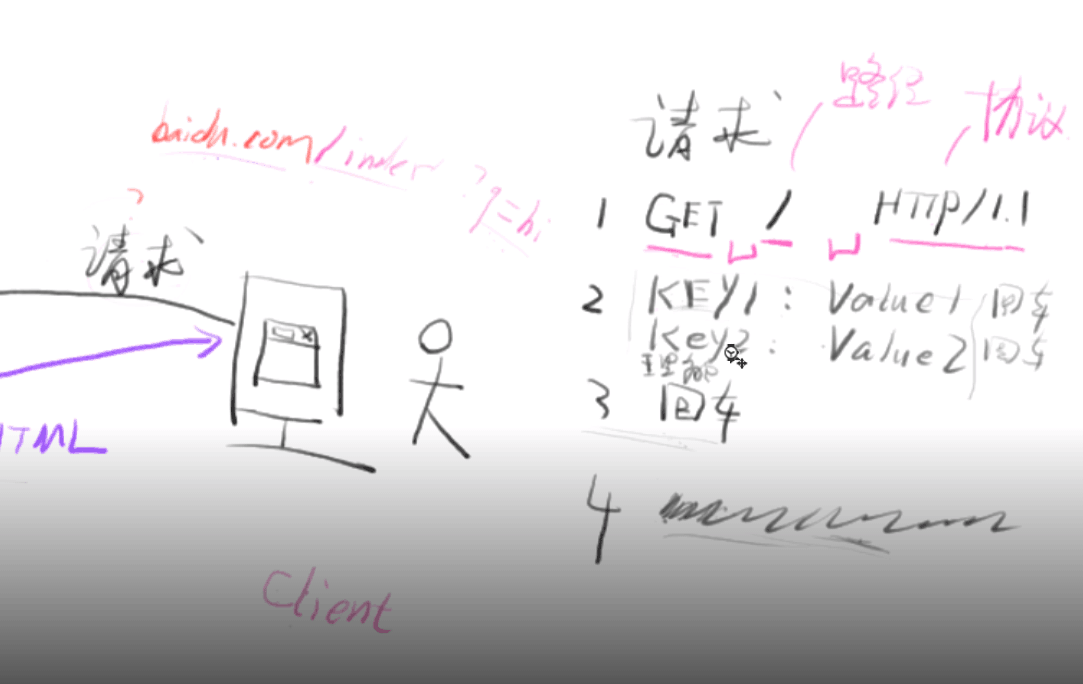 baidu.com/index ?q=hi
请求
HTML
Client
请求 路径 协议
1 GET / HTTP/1.1
2 KEY1 : Value1 回车
Key2 : Value2 回车
3 回车
4